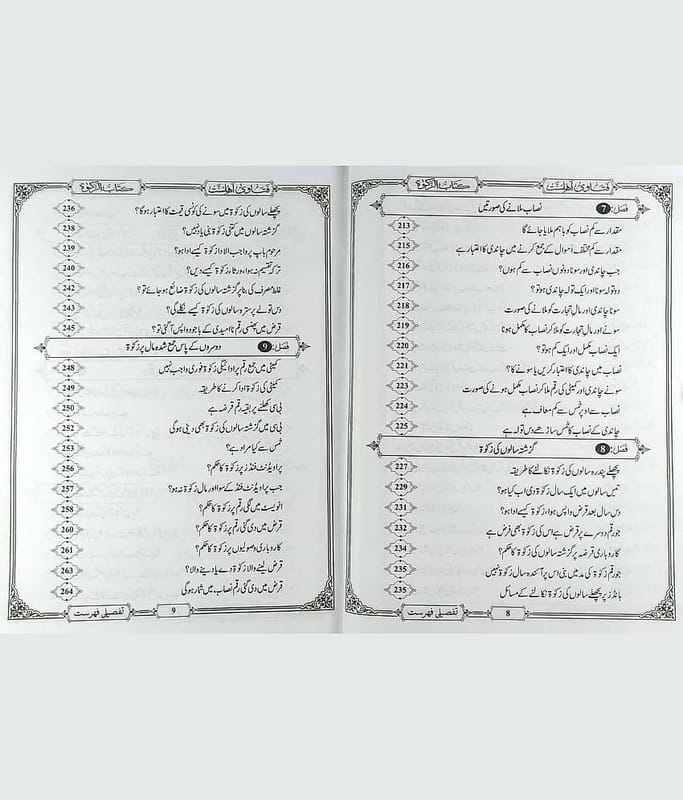 فتاویٰ اھلسنت
کتاب الزکوٰۃ
فصل: 7 نصاب ملانے کی صورتیں
مقدار سے کم نصاب کو باہم ملایا جائے گا 213
مقدار سے کم مختلف اموال کے جمع کرنے میں چاندی کا اعتبار ہے 215
جب چاندی اور سونا دونوں نصاب سے کم ہوں؟ 216
دو تولہ سونا اور ایک تولہ چاندی ہو تو؟ 217
سونا چاندی اور مال تجارت کو ملانے کی صورت 218
سونے اور مال تجارت کو ملا کر نصاب کا مکمل ہونا 219
ایک نصاب مکمل اور ایک کم ہو تو؟ 220
نصاب میں چاندی کا اعتبار کریں یا سونے کا؟ 221
سونے چاندی اور کمیٹی کی رقم ملا کر نصاب مکمل ہونے کی صورت 223
نصاب سے اوپر خمس سے کم معاف ہے 224
چاندی کے نصاب کا خمس ساڑھے دس تولہ ہے 225
فصل: 8 گزشتہ سالوں کی زکوٰۃ
پچھلے پندرہ سالوں کی زکوٰۃ نکالنے کا طریقہ 227
تیس سالوں میں ایک سال زکوٰۃ دی اب کیا ہو؟ 229
دس سال بعد قرض واپس ہوا، زکوٰۃ کیسے ادا ہو؟ 231
جو رقم دوسرے پر قرض ہے اس کی زکوٰۃ بھی فرض ہے 232
کاروباری قرضہ پر گزشتہ سالوں کی زکوٰۃ کا حکم؟ 234
جو رقم زکوٰۃ کی مد میں بنی اس پر آئندہ سال زکوٰۃ نہیں 235
بانڈز پر پچھلے سالوں کی زکوٰۃ نکالنے کے مسائل 235
تفصیلی فہرست
8
فتاویٰ اھلسنت
کتاب الزکوٰۃ
پچھلے سالوں کی زکوٰۃ میں سونے کی کونسی قیمت کا اعتبار ہوگا؟ 236
گزشتہ سالوں میں کتنی زکوٰۃ بنی یاد نہیں؟ 238
مرحوم باپ پر واجب الادا زکوٰۃ کیسے ادا ہو؟ 239
ترکہ تقسیم نہ ہوا، ورثاء زکوٰۃ کیسے دیں؟ 240
غلط مصرف کی بنا پر گزشتہ سالوں کی زکوٰۃ ضائع ہو جائے تو؟ 242
دس تولے پر سترہ سالوں کی زکوٰۃ کیسے نکلے گی؟ 243
قرض میں پھنسی رقم ناامیدی کے باوجود واپس آگئی تو؟ 245
فصل: 9 دوسروں کے پاس جمع شدہ مال پر زکوٰۃ
کمیٹی میں جمع رقم پر ادائیگی زکوٰۃ فوری واجب نہیں 248
کمیٹی کی زکوٰۃ ادا کرنے کا طریقہ 249
بی سی کھلنے پر بقیہ رقم قرضہ ہے 250
بی سی میں گزشتہ سالوں کی زکوٰۃ بھی دینی ہوگی 252
خمس سے کیا مراد ہے؟ 253
پراویڈنٹ فنڈز پر زکوٰۃ کا حکم؟ 256
جب پراویڈنٹ فنڈ کے سوا اور مال زکوٰۃ نہ ہو؟ 257
انویسٹ میں لگی رقم پر زکوٰۃ کا حکم؟ 258
قرض میں دی گئی رقم پر زکوٰۃ کا حکم؟ 260
کاروباری وصولیوں پر زکوٰۃ کا حکم؟ 261
قرض لینے والا زکوٰۃ دے یا دینے والا؟ 263
قرض میں دی گئی رقم نصاب میں شمار ہوگی 264
تفصیلی فہرست
9